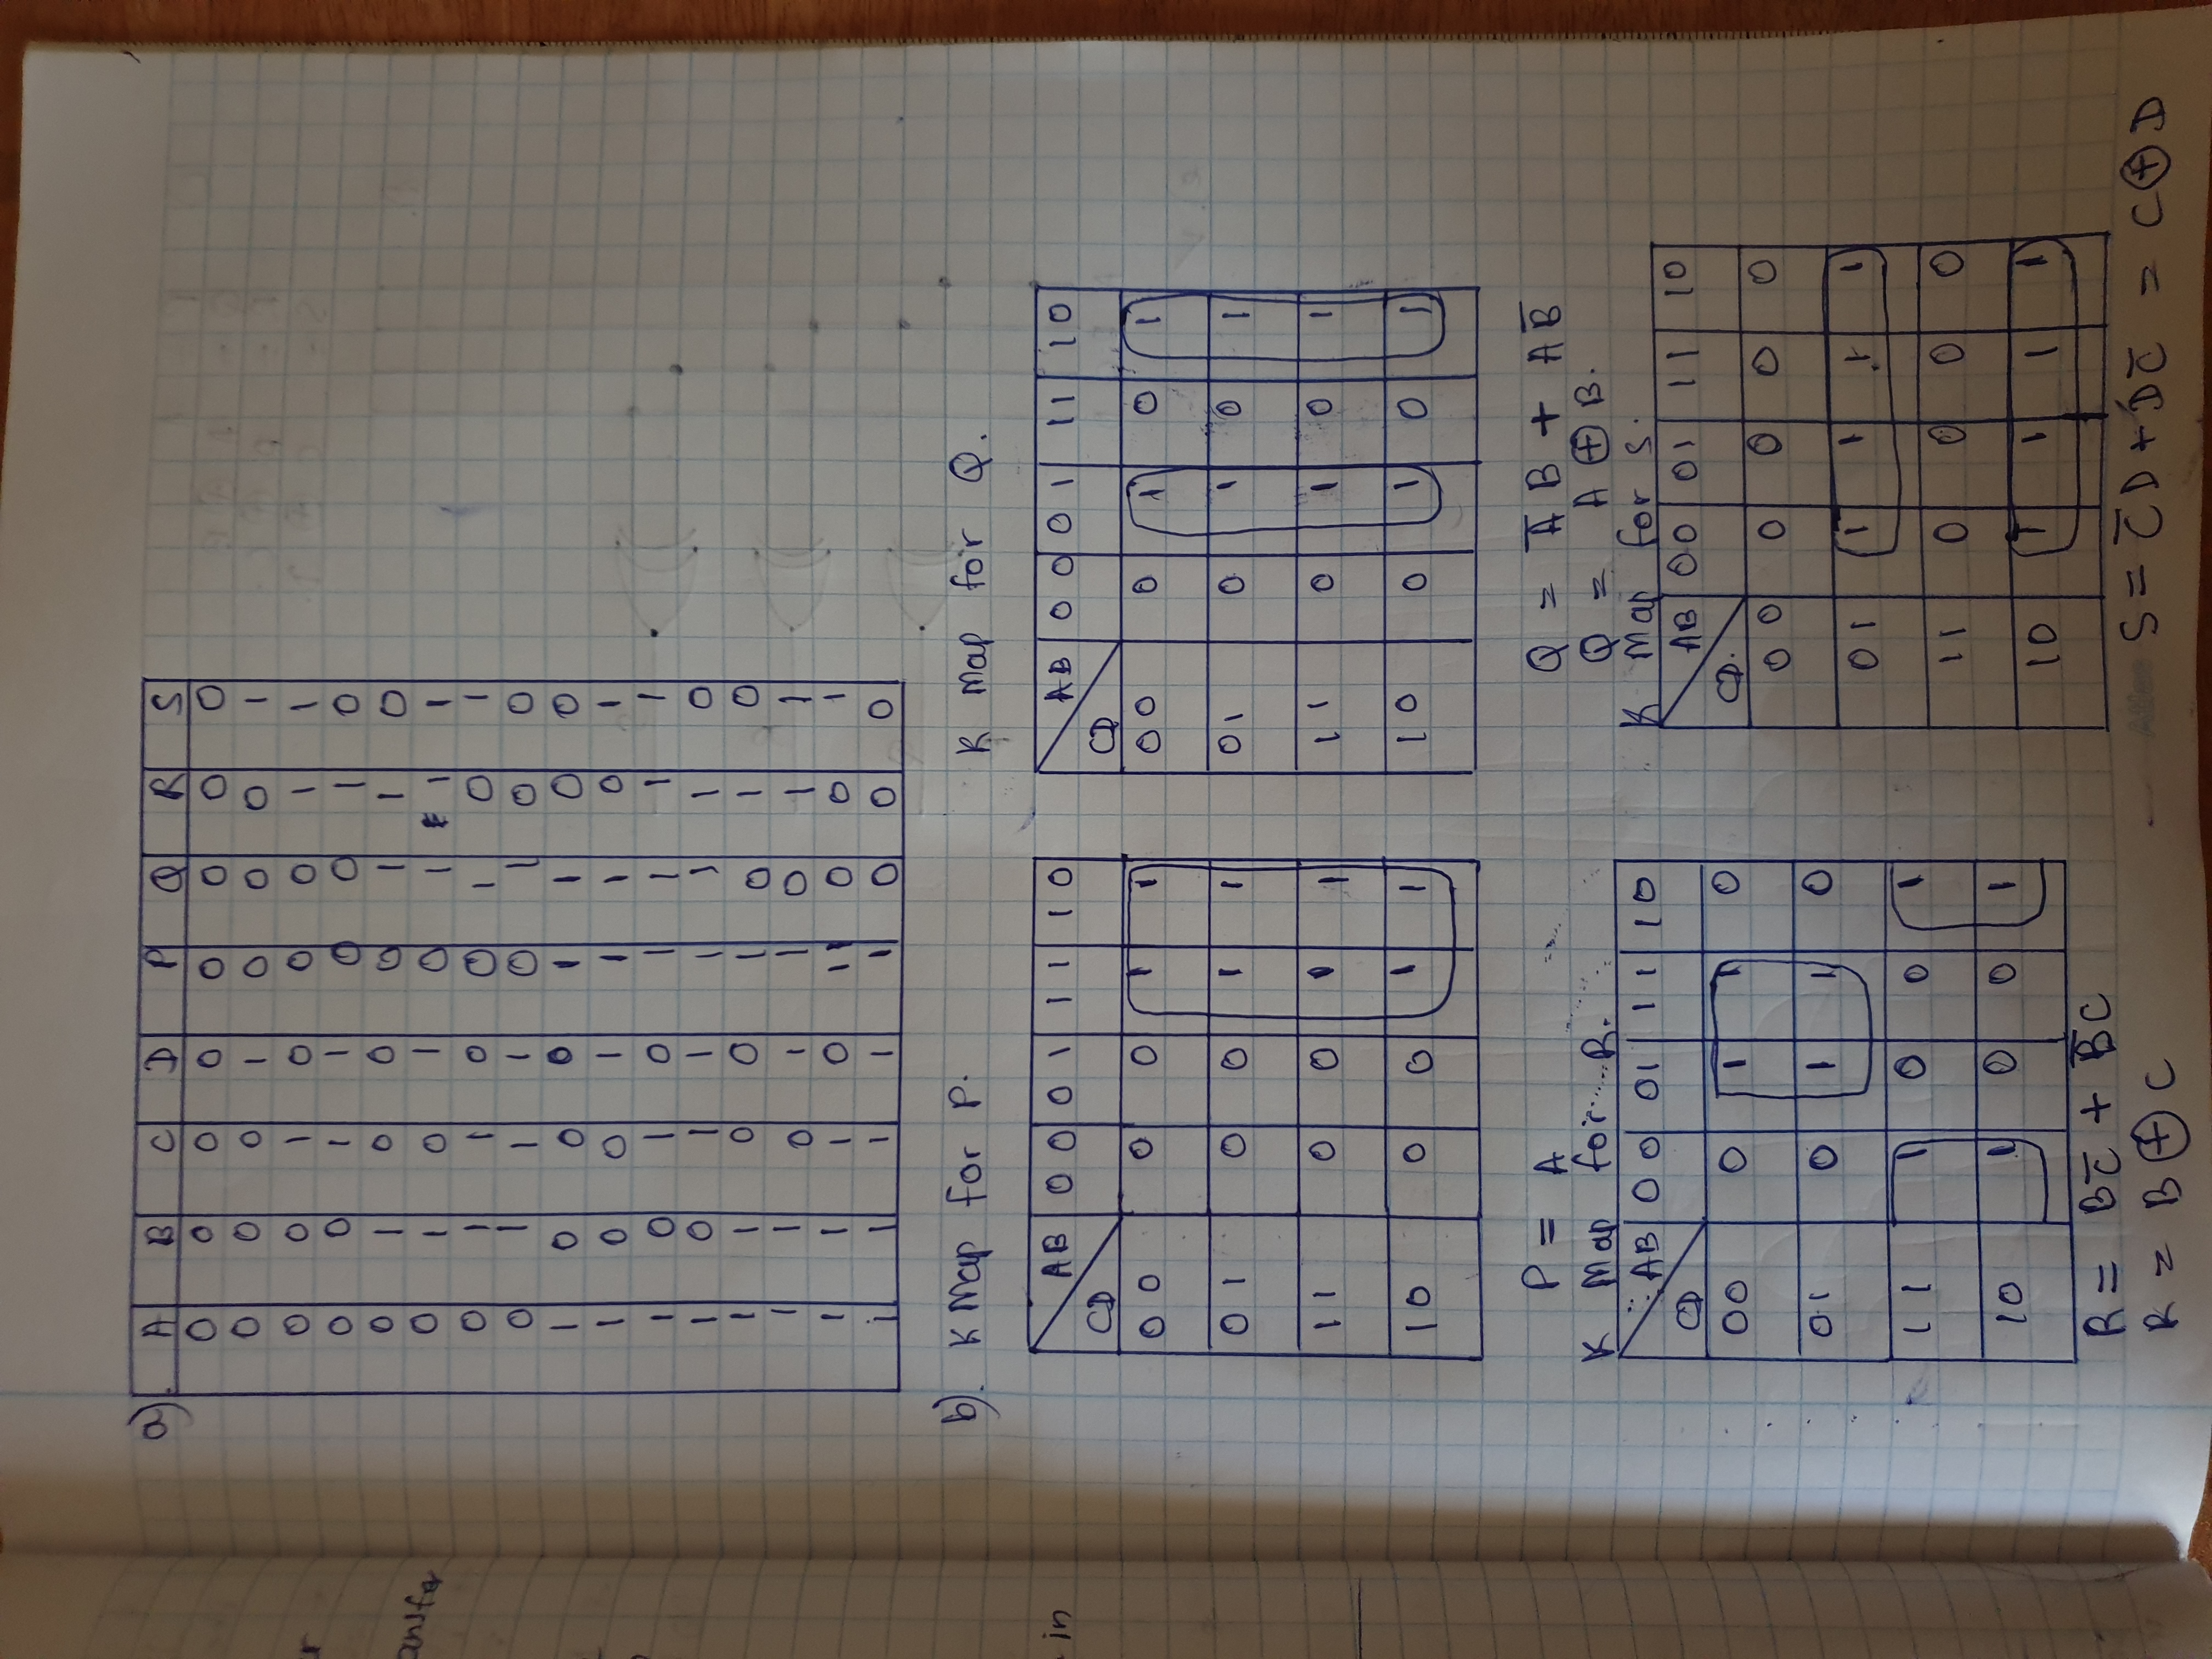 r
ansfer
in
a) A B C D P Q R S
0 0 0 0 0 0 0 0
0 0 0 1 0 0 0 1
0 0 1 0 0 0 1 1
0 0 1 1 0 0 1 0
0 1 0 0 0 1 1 0
0 1 0 1 0 1 1 1
0 1 1 0 0 1 0 1
0 1 1 1 0 1 0 0
1 0 0 0 1 1 0 0
1 0 0 1 1 1 0 1
1 0 1 0 1 1 1 1
1 0 1 1 1 1 1 0
1 1 0 0 1 0 1 0
1 1 0 1 1 0 1 1
1 1 1 0 1 0 0 1
1 1 1 1 1 0 0 0
b). K Map for P.
AB 00 01 11 10
CD
00 0 0 1 1
01 0 0 1 1
11 0 0 1 1
10 0 0 1 1
P = A
K Map for Q.
AB 00 01 11 10
CD
00 0 1 0 1
01 0 1 0 1
11 0 1 0 1
10 0 1 0 1
Q = A̅ B + A B̅
Q = A ⊕ B.
K Map for R.
AB 00 01 11 10
CD
00 0 1 1 0
01 0 1 1 0
11 1 0 0 1
10 1 0 0 1
R = B C̅ + B̅ C
R = B ⊕ C
K Map for S.
AB 00 01 11 10
CD.
00 0 0 0 0
01 1 1 1 1
11 0 0 0 0
10 1 1 1 1
S = C̅ D + D C̅ = C ⊕ D